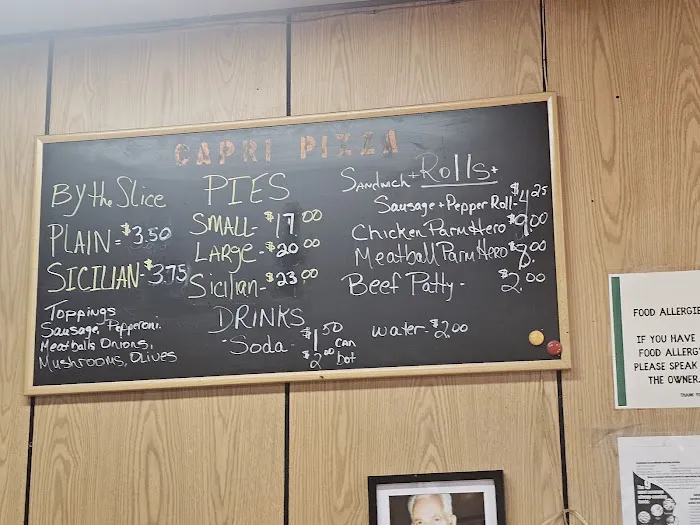 CAPRI PIZZA
By the Slice
PLAIN = $3.50
SICILIAN - $3.75
Toppings
Sausage, Pepperoni,
Meatballs Onions,
Mushrooms, Olives
PIES
SMALL - $17.00
LARGE - $20.00
Sicilian - $23.00
DRINKS
Soda - $1.50 can
$2.00 bot
Sandwich + Rolls +
Sausage + Pepper Roll - $4.25
Chicken Parm Hero $9.00
Meatball Parm Hero $8.00
Beef Patty - $2.00
water - $2.00
FOOD ALLERGIE
IF YOU HAVE
FOOD ALLERG
PLEASE SPEAK
THE OWNER